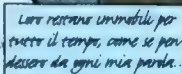 Loro restano immobili per
tutto il tempo, come se pen
dessero da ogni mia parola.